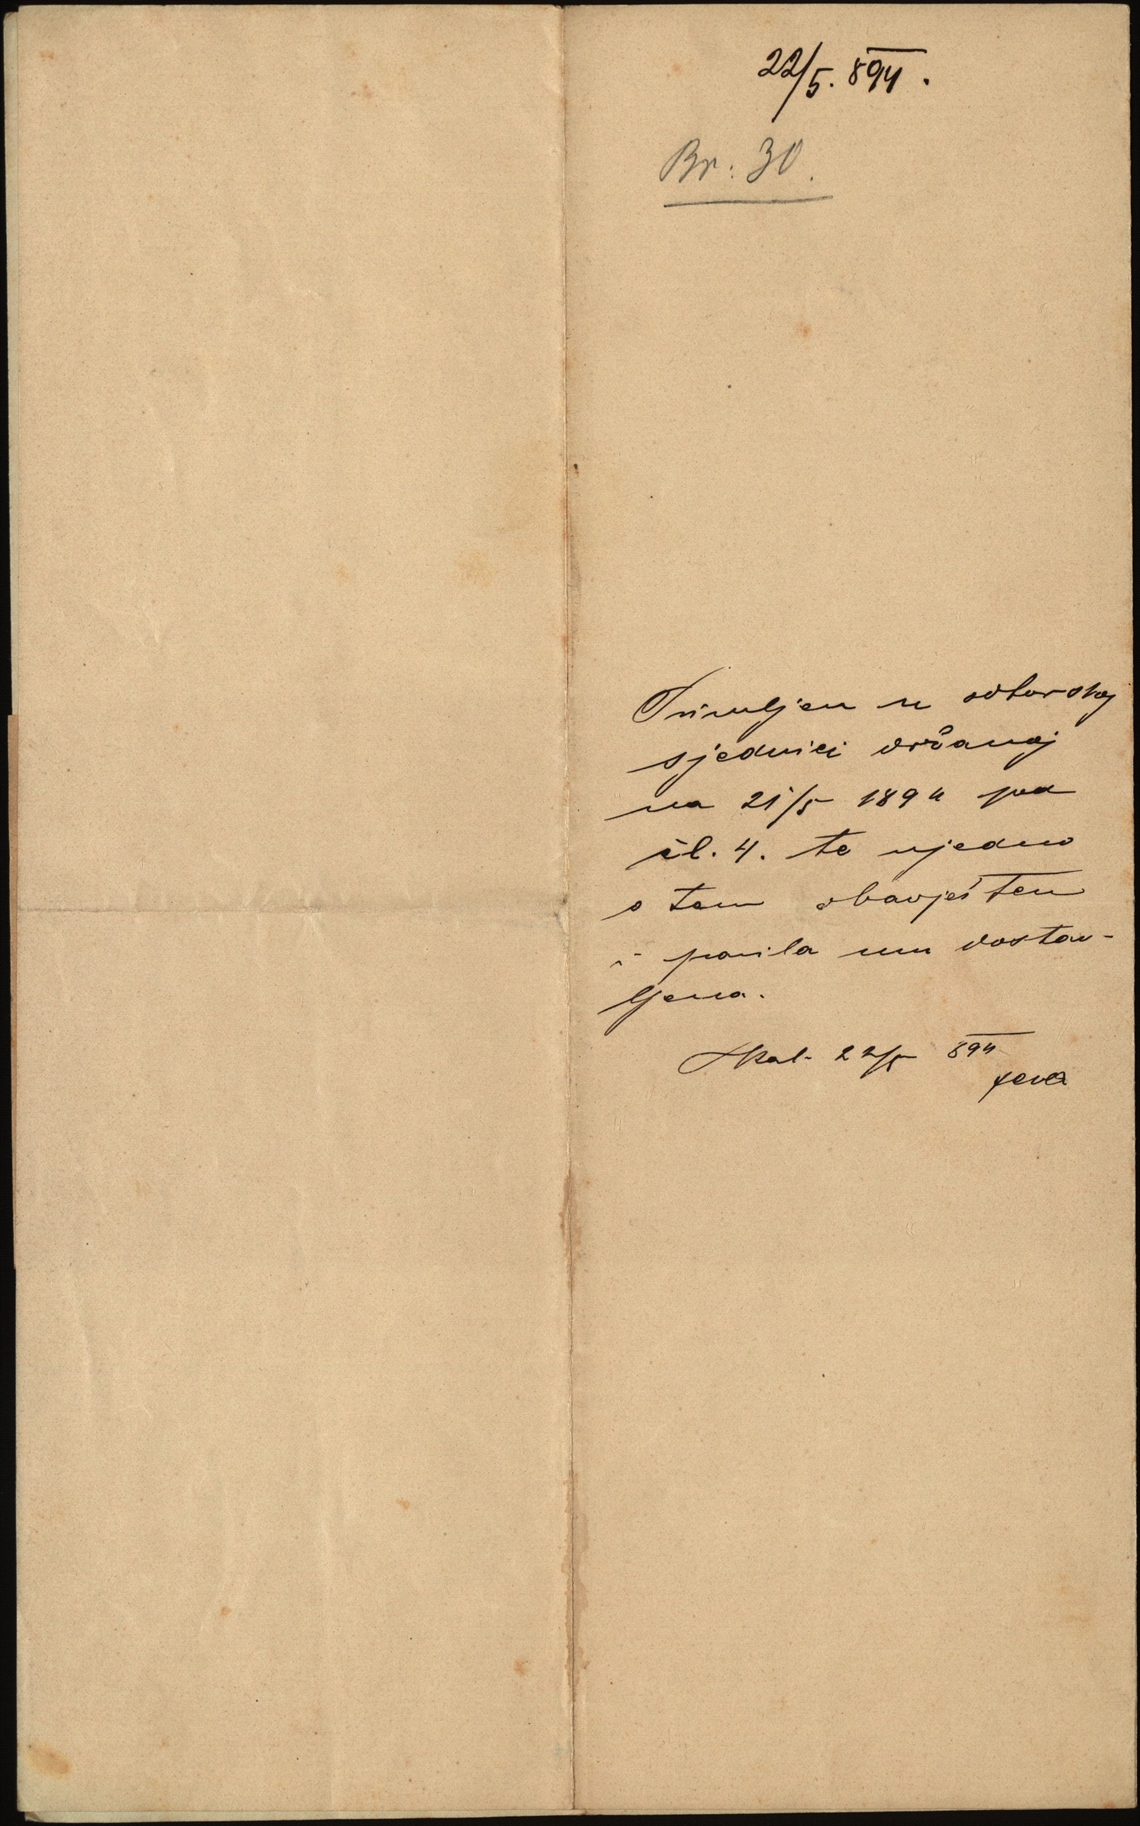 22/5. 894.
Br: 30.
Primljen u odborskoj
sjednici držanoj
na 21/5 1894 pod
čl. 4. te ujedno
o tem obavješten
i pravila mu dostav-
ljena.
22/5 894